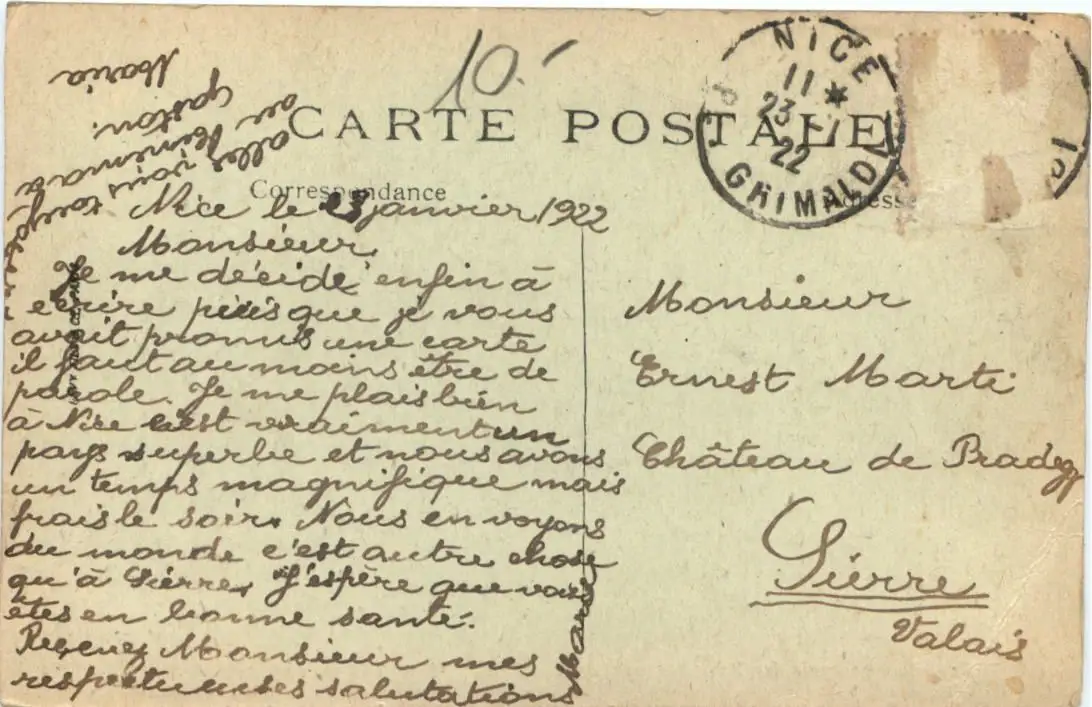 10.-
CARTE POSTALE
NICE
11 *
23 - 1
22
GRIMALDI
Correspondance
Adresse
Nice le 23 janvier 1922
Monsieur
Je me décide enfin à
écrire puisque je vous
avait promis une carte
il faut au moins être de
parole. Je me plais bien
à Nice c'est vraiment un
pays superbe et nous avons
un temps magnifique mais
frais le soir. Nous en voyons
du monde c'est autre chose
qu'à Sierre. J'espère que vous
êtes en bonne santé.
Recevez Monsieur mes
respectueuses salutations
allez vous toujours
au Kinéma
Gaston.
Maria
Monsieur
Ernest Marti
Château de Pradegg
Sierre
Valais